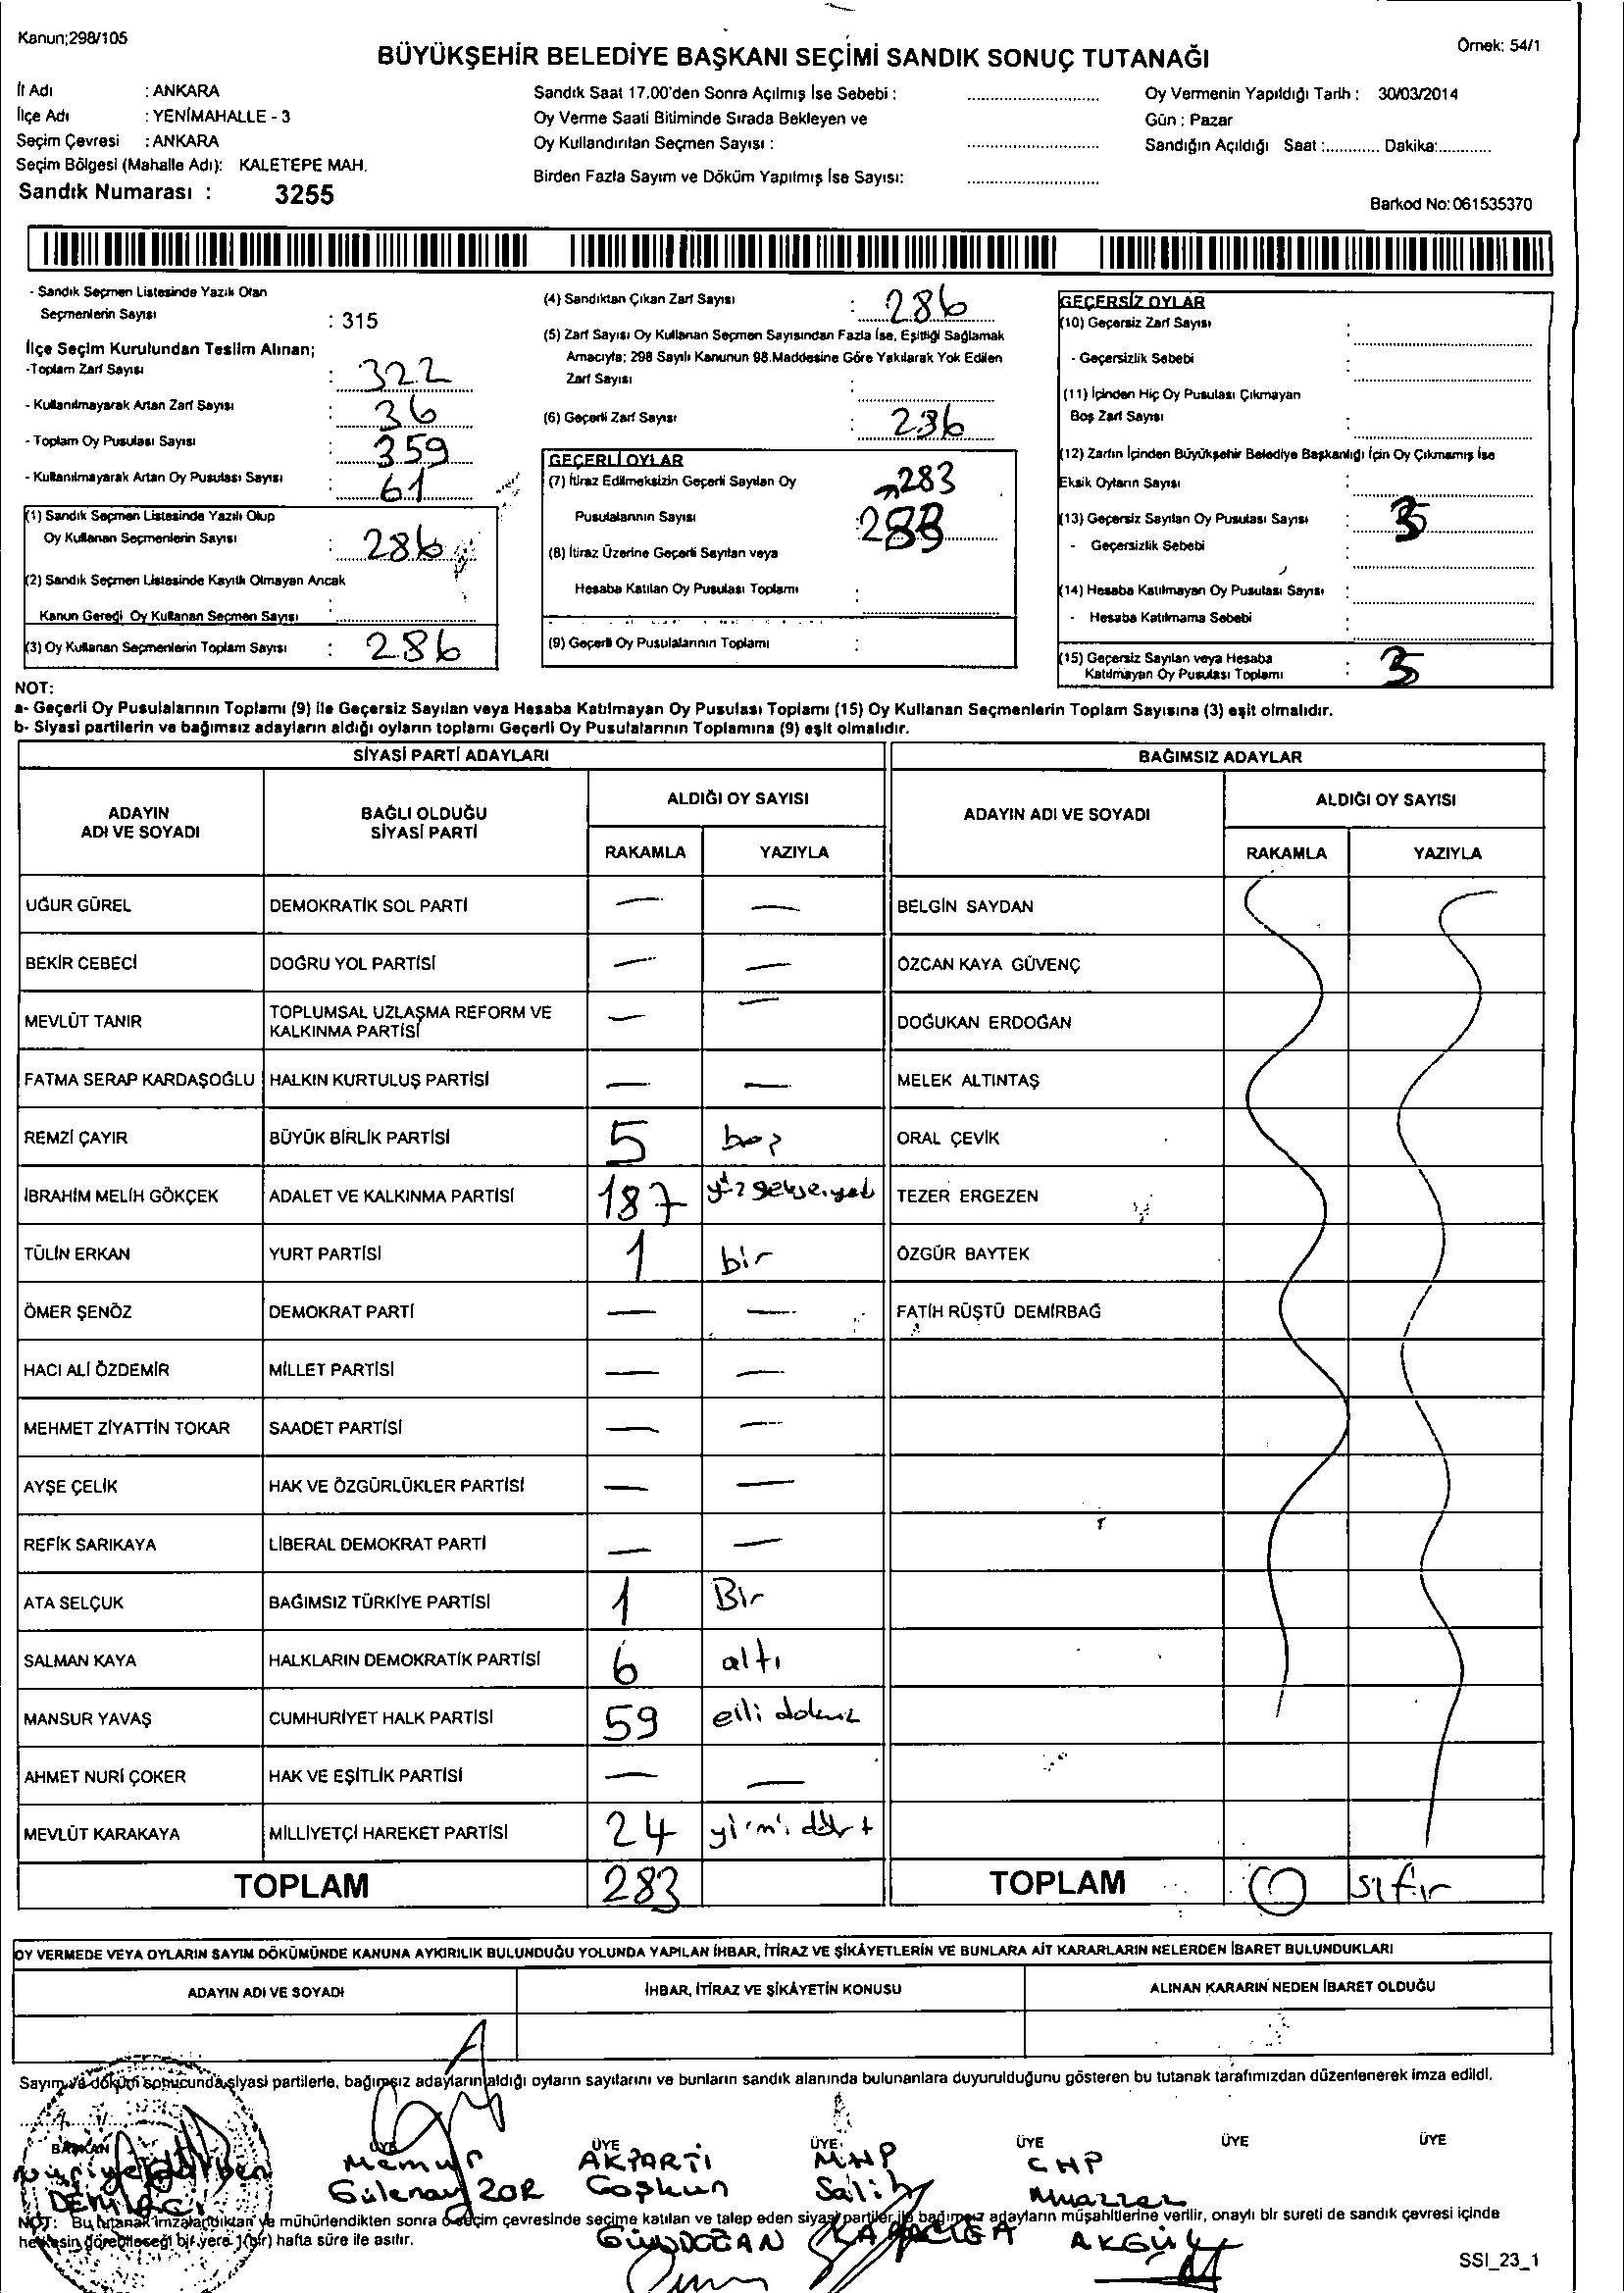 Kanun;298/105
Örnek: 54/1
BÜYÜKŞEHİR BELEDİYE BAŞKANI SEÇİMİ SANDIK SONUÇ TUTANAĞI
İl Adı : ANKARA
İlçe Adı : YENİMAHALLE - 3
Seçim Çevresi : ANKARA
Seçim Bölgesi (Mahalle Adı): KALETEPE MAH.
Sandık Numarası : 3255
Sandık Saat 17.00'den Sonra Açılmış İse Sebebi :
Oy Verme Saati Bitiminde Sırada Bekleyen ve
Oy Kullandırılan Seçmen Sayısı :
Birden Fazla Sayım ve Döküm Yapılmış İse Sayısı:
Oy Vermenin Yapıldığı Tarih : 30/03/2014
Gün : Pazar
Sandığın Açıldığı Saat :............ Dakika:............
Barkod No:061535370
- Sandık Seçmen Listesinde Yazılı Olan
Seçmenlerin Sayısı : 315
İlçe Seçim Kurulundan Teslim Alınan;
-Toplam Zarf Sayısı : 322
- Kullanılmayarak Artan Zarf Sayısı : 36
- Toplam Oy Pusulası Sayısı : 359
- Kullanılmayarak Artan Oy Pusulası Sayısı : 61
(1) Sandık Seçmen Listesinde Yazılı Olup
Oy Kullanan Seçmenlerin Sayısı : 286
(2) Sandık Seçmen Listesinde Kayıtlı Olmayan Ancak
Kanun Gereği Oy Kullanan Seçmen Sayısı :
(3) Oy Kullanan Seçmenlerin Toplam Sayısı : 286
(4) Sandıktan Çıkan Zarf Sayısı : 286
(5) Zarf Sayısı Oy Kullanan Seçmen Sayısından Fazla İse, Eşitliği Sağlamak
Amacıyla; 298 Sayılı Kanunun 98.Maddesine Göre Yakılarak Yok Edilen
Zarf Sayısı :
(6) Geçerli Zarf Sayısı : 286
GEÇERLİ OYLAR
(7) İtiraz Edilmeksizin Geçerli Sayılan Oy 283
Pusulalarının Sayısı :
(8) İtiraz Üzerine Geçerli Sayılan veya
Hesaba Katılan Oy Pusulası Toplamı :
(9) Geçerli Oy Pusulalarının Toplamı :
GEÇERSİZ OYLAR
(10) Geçersiz Zarf Sayısı :
- Geçersizlik Sebebi :
(11) İçinden Hiç Oy Pusulası Çıkmayan
Boş Zarf Sayısı :
(12) Zarfın İçinden Büyükşehir Belediye Başkanlığı İçin Oy Çıkmamış İse
Eksik Oyların Sayısı :
(13) Geçersiz Sayılan Oy Pusulası Sayısı : 3
- Geçersizlik Sebebi :
(14) Hesaba Katılmayan Oy Pusulası Sayısı :
- Hesaba Katılmama Sebebi :
(15) Geçersiz Sayılan veya Hesaba
Katılmayan Oy Pusulası Toplamı : 3
NOT:
a- Geçerli Oy Pusulalarının Toplamı (9) ile Geçersiz Sayılan veya Hesaba Katılmayan Oy Pusulası Toplamı (15) Oy Kullanan Seçmenlerin Toplam Sayısına (3) eşit olmalıdır.
b- Siyasi partilerin ve bağımsız adayların aldığı oyların toplamı Geçerli Oy Pusulalarının Toplamına (9) eşit olmalıdır.
SİYASİ PARTİ ADAYLARI BAĞIMSIZ ADAYLAR
ADAYIN ADI VE SOYADI BAĞLI OLDUĞU SİYASİ PARTİ ALDIĞI OY SAYISI ADAYIN ADI VE SOYADI ALDIĞI OY SAYISI
RAKAMLA YAZIYLA RAKAMLA YAZIYLA
UĞUR GÜREL DEMOKRATİK SOL PARTİ — — BELGİN SAYDAN
BEKİR CEBECİ DOĞRU YOL PARTİSİ — — ÖZCAN KAYA GÜVENÇ
MEVLÜT TANIR TOPLUMSAL UZLAŞMA REFORM VE KALKINMA PARTİSİ — — DOĞUKAN ERDOĞAN
FATMA SERAP KARDAŞOĞLU HALKIN KURTULUŞ PARTİSİ — — MELEK ALTINTAŞ
REMZİ ÇAYIR BÜYÜK BİRLİK PARTİSİ 5 beş ORAL ÇEVİK
İBRAHİM MELİH GÖKÇEK ADALET VE KALKINMA PARTİSİ 187 yüz seksenyedi TEZER ERGEZEN
TÜLİN ERKAN YURT PARTİSİ 1 bir ÖZGÜR BAYTEK
ÖMER ŞENÖZ DEMOKRAT PARTİ — — FATİH RÜŞTÜ DEMİRBAĞ
HACI ALİ ÖZDEMİR MİLLET PARTİSİ — —
MEHMET ZİYATTİN TOKAR SAADET PARTİSİ — —
AYŞE ÇELİK HAK VE ÖZGÜRLÜKLER PARTİSİ — —
REFİK SARIKAYA LİBERAL DEMOKRAT PARTİ — —
ATA SELÇUK BAĞIMSIZ TÜRKİYE PARTİSİ 1 Bir
SALMAN KAYA HALKLARIN DEMOKRATİK PARTİSİ 6 altı
MANSUR YAVAŞ CUMHURİYET HALK PARTİSİ 59 elli dokuz
AHMET NURİ ÇOKER HAK VE EŞİTLİK PARTİSİ — —
MEVLÜT KARAKAYA MİLLİYETÇİ HAREKET PARTİSİ 24 yirmi dört
TOPLAM 283 TOPLAM 0 sıfır
OY VERMEDE VEYA OYLARIN SAYIM DÖKÜMÜNDE KANUNA AYKIRILIK BULUNDUĞU YOLUNDA YAPILAN İHBAR, İTİRAZ VE ŞİKÂYETLERİN VE BUNLARA AİT KARARLARIN NELERDEN İBARET BULUNDUKLARI
ADAYIN ADI VE SOYADI İHBAR, İTİRAZ VE ŞİKÂYETİN KONUSU ALINAN KARARIN NEDEN İBARET OLDUĞU
Sayım ve döküm sonucunda siyasi partilerle, bağımsız adayların aldığı oyların sayılarını ve bunların sandık alanında bulunanlara duyurulduğunu gösteren bu tutanak tarafımızdan düzenlenerek imza edildi.
BAŞKAN ÜYE ÜYE ÜYE ÜYE ÜYE ÜYE
Memur AKPARTİ MHP CHP
Gülenay ZOR Coşkun Salih Muazzez
GÜNDOĞAN KARACIĞA AKGÜL
NOT: Bu tutanak imzalandıktan ve mühürlendikten sonra o seçim çevresinde seçime katılan ve talep eden siyasi partiler ile bağımsız adayların müşahitlerine verilir, onaylı bir sureti de sandık çevresi içinde
herkesin görebileceği bir yere 1(bir) hafta süre ile asılır.
SSI_23_1